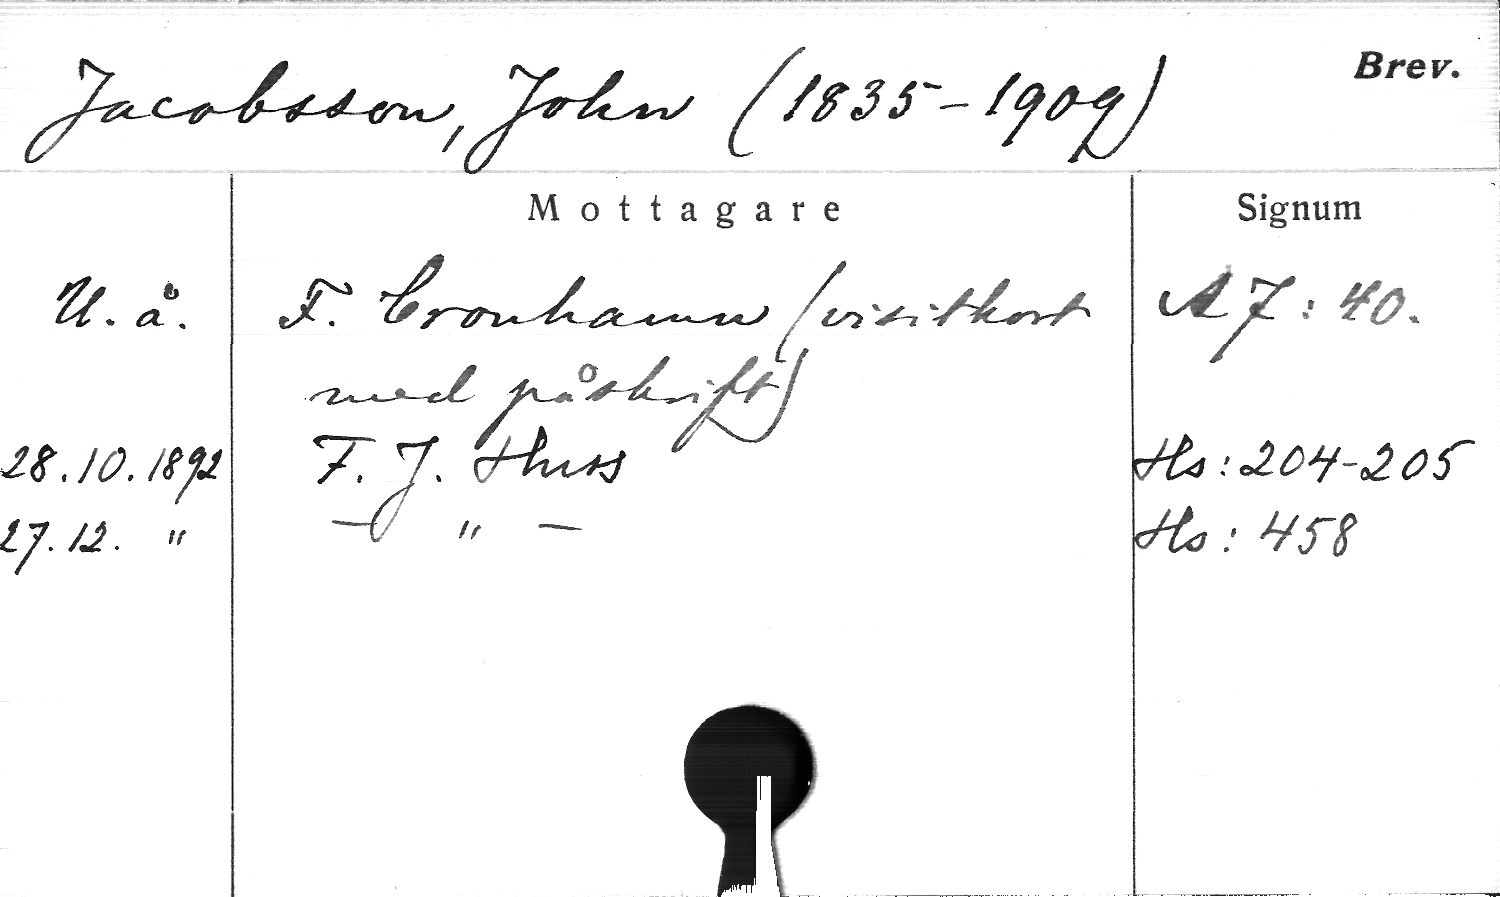 Jacobsson, John (1835-1909) Brev.
Mottagare Signum
U. å. F. Cronhamn (visitkort A 7: 40.
med påskrift)
28.10.1892 F. J. Huss Hs: 204-205
27.12. " — " — Hs: 458